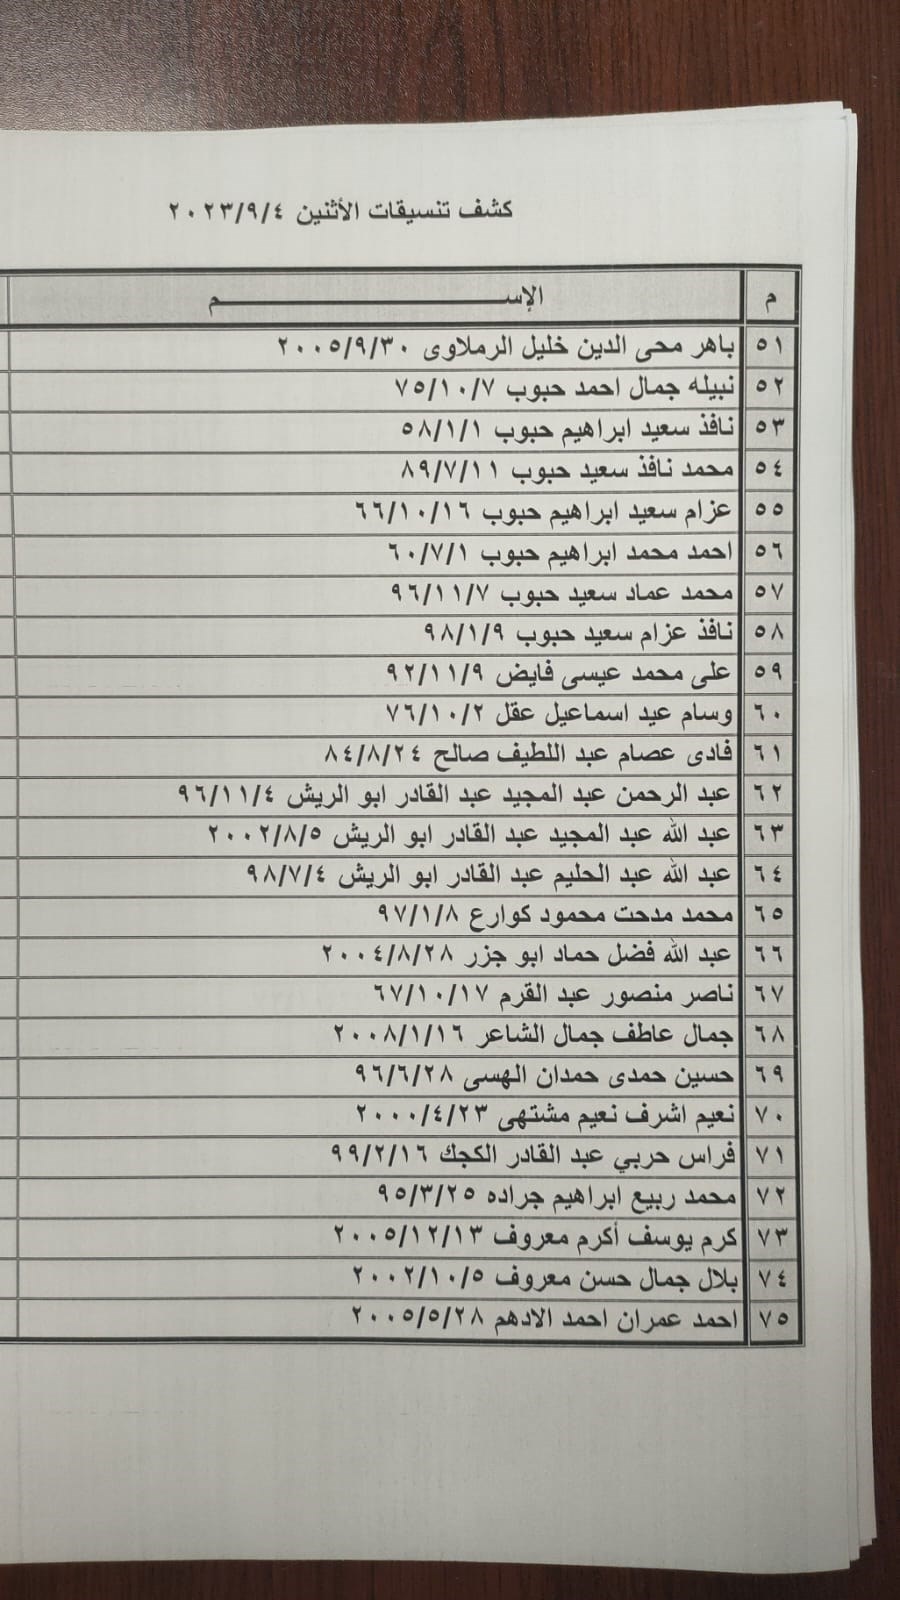 كشف تنسيقات الأثنين ٢٠٢٣/٩/٤
م الإســـــــــــم
٥١ باهر محى الدين خليل الرملاوى ٢٠٠٥/٩/٣٠
٥٢ نبيله جمال احمد حبوب ٧٥/١٠/٧
٥٣ نافذ سعيد ابراهيم حبوب ٥٨/١/١
٥٤ محمد نافذ سعيد حبوب ٨٩/٧/١١
٥٥ عزام سعيد ابراهيم حبوب ٦٦/١٠/١٦
٥٦ احمد محمد ابراهيم حبوب ٦٠/٧/١
٥٧ محمد عماد سعيد حبوب ٩٦/١١/٧
٥٨ نافذ عزام سعيد حبوب ٩٨/١/٩
٥٩ على محمد عيسى فايض ٩٢/١١/٩
٦٠ وسام عيد اسماعيل عقل ٧٦/١٠/٢
٦١ فادى عصام عبد اللطيف صالح ٨٤/٨/٢٤
٦٢ عبد الرحمن عبد المجيد عبد القادر ابو الريش ٩٦/١١/٤
٦٣ عبد الله عبد المجيد عبد القادر ابو الريش ٢٠٠٢/٨/٥
٦٤ عبد الله عبد الحليم عبد القادر ابو الريش ٩٨/٧/٤
٦٥ محمد مدحت محمود كوارع ٩٧/١/٨
٦٦ عبد الله فضل حماد ابو جزر ٢٠٠٤/٨/٢٨
٦٧ ناصر منصور عبد القرم ٦٧/١٠/١٧
٦٨ جمال عاطف جمال الشاعر ٢٠٠٨/١/١٦
٦٩ حسين حمدى حمدان الهسى ٩٦/٦/٢٨
٧٠ نعيم اشرف نعيم مشتهى ٢٠٠٠/٤/٢٣
٧١ فراس حربي عبد القادر الكجك ٩٩/٢/١٦
٧٢ محمد ربيع ابراهيم جراده ٩٥/٣/٢٥
٧٣ كرم يوسف أكرم معروف ٢٠٠٥/١٢/١٣
٧٤ بلال جمال حسن معروف ٢٠٠٢/١٠/٥
٧٥ احمد عمران احمد الادهم ٢٠٠٥/٥/٢٨